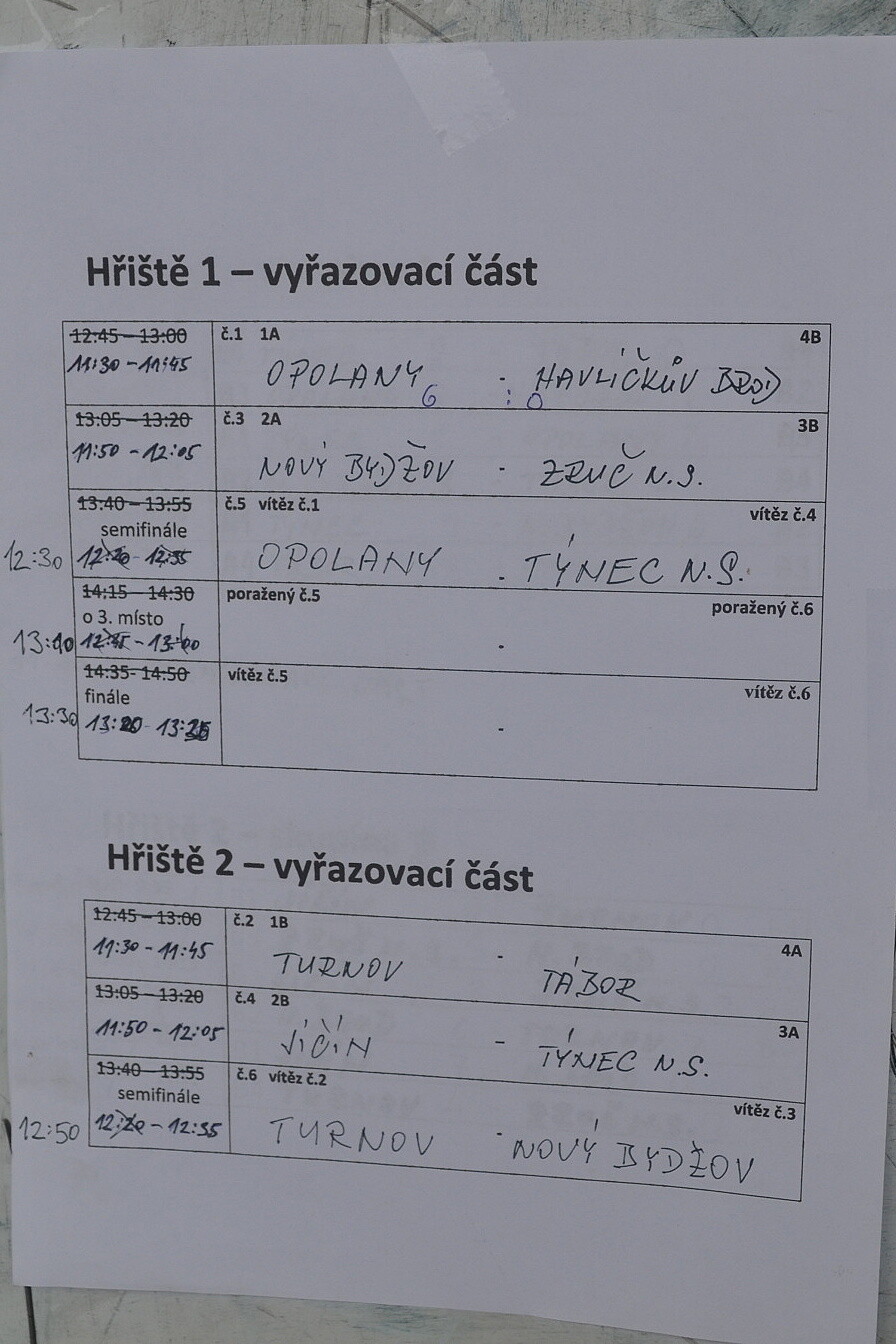 Hřiště 1 – vyřazovací část
12:45 – 13:00 č.1 1A 4B
11:30 - 11:45 OPOLANY - HAVLÍČKŮV BROD
6 : 0
13:05 – 13:20 č.3 2A 3B
11:50 - 12:05 NOVÝ BYDŽOV - ZRUČ N.S.
13:40 – 13:55 č.5 vítěz č.1 vítěz č.4
semifinále
12:30 12:20 - 12:35 OPOLANY - TÝNEC N.S.
14:15 – 14:30 poražený č.5 poražený č.6
o 3. místo
13:10 12:45 - 13:00 -
14:35- 14:50 vítěz č.5 vítěz č.6
finále
13:30 13:20 - 13:35 -
Hřiště 2 – vyřazovací část
12:45 – 13:00 č.2 1B 4A
11:30 - 11:45 TURNOV - TÁBOR
13:05 – 13:20 č.4 2B 3A
11:50 - 12:05 JIČÍN - TÝNEC N.S.
13:40 – 13:55 č.6 vítěz č.2 vítěz č.3
semifinále
12:50 12:20 - 12:35 TURNOV - NOVÝ BYDŽOV